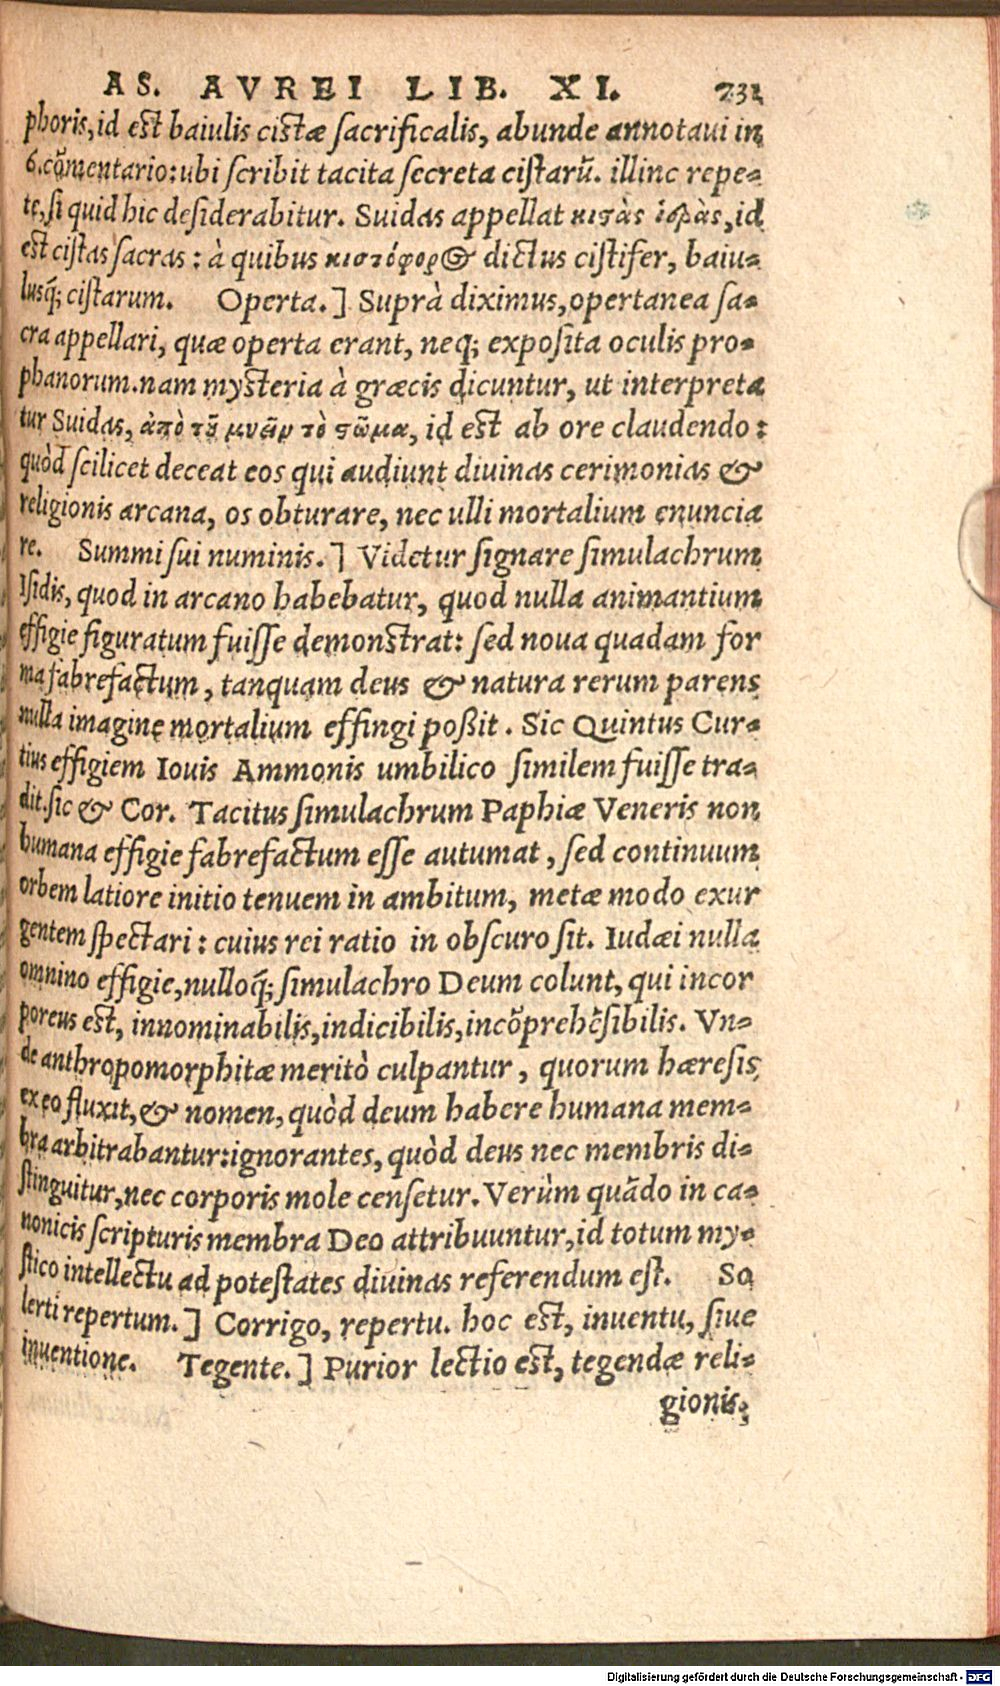 AS. AVREI LIB. XI. 231
phoris, id est baiulis cistæ sacrificalis, abunde annotaui in
6. cõmentario: ubi scribit tacita secreta cistarũ. illinc repe-
te, si quid hic desiderabitur. Suidas appellat κιστὰς ἱερὰς, id
est cistas sacras: à quibus κιστόφορος dictus cistifer, baiu-
lusq́; cistarum. Operta.] Suprà diximus, opertanea sa-
cra appellari, quæ operta erant, neq; exposita oculis pro-
phanorum. nam mysteria à græcis dicuntur, ut interpreta
tur Suidas, ἀπὸ τοῦ μυεῖν τὸ στῶμα, id est ab ore claudendo:
quòd scilicet deceat eos qui audiunt diuinas cerimonias &
religionis arcana, os obturare, nec ulli mortalium enuncia
re. Summi sui numinis.] Videtur signare simulachrum
Isidis, quod in arcano habebatur, quod nulla animantium
effigie figuratum fuisse demonstrat: sed noua quadam for
ma fabrefactum, tanquam deus & natura rerum parens
nulla imagine mortalium effingi poßit. Sic Quintus Cur-
tius effigiem Iouis Ammonis umbilico similem fuisse tra-
dit. sic & Cor. Tacitus simulachrum Paphiæ Veneris non
humana effigie fabrefactum esse autumat, sed continuum
orbem latiore initio tenuem in ambitum, metæ modo exur
gentem spectari: cuius rei ratio in obscuro sit. Iudæi nulla
omnino effigie, nulloq́; simulachro Deum colunt, qui incor
poreus est, innominabilis, indicibilis, incõprehẽsibilis. Vn-
de anthropomorphitæ meritò culpantur, quorum hæresis
ex eo fluxit, & nomen, quòd deum habere humana mem-
bra arbitrabantur: ignorantes, quòd deus nec membris di-
stinguitur, nec corporis mole censetur. Verùm quãdo in ca-
nonicis scripturis membra Deo attribuuntur, id totum my-
stico intellectu ad potestates diuinas referendum est. So
lerti repertum.] Corrigo, repertu. hoc est, inuentu, siue
inuentione. Tegente.] Purior lectio est, tegendæ reli-
gionis.
Digitalisierung gefördert durch die Deutsche Forschungsgemeinschaft - DFG